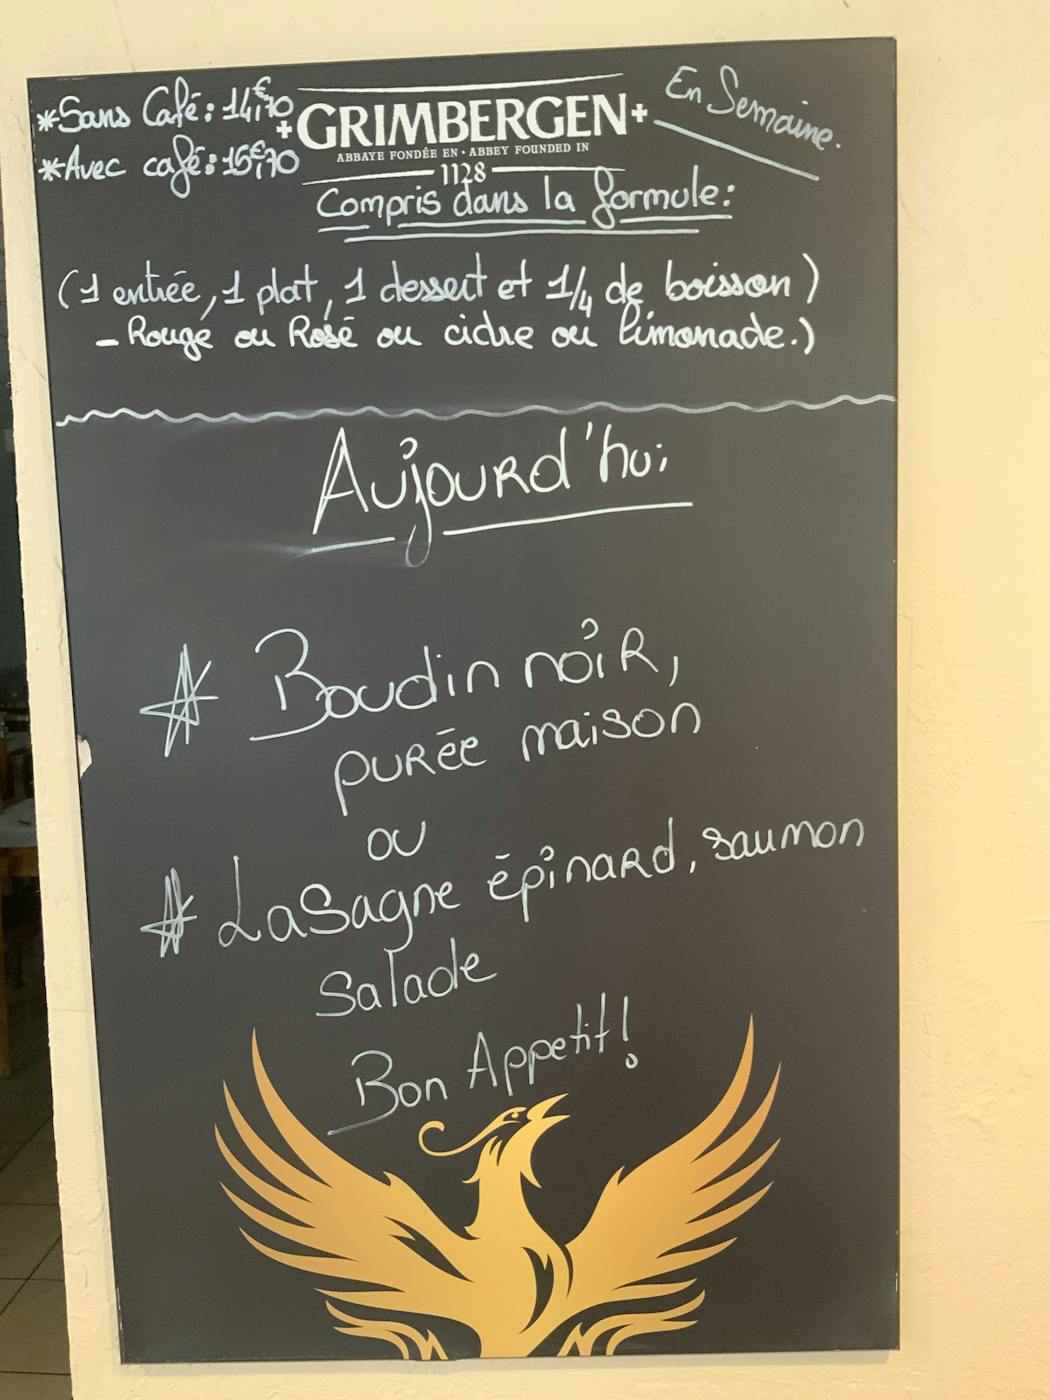 *Sans Café: 14,€70
*Avec café: 15,€70
GRIMBERGEN
ABBAYE FONDÉE EN · ABBEY FOUNDED IN
1128
En Semaine.
Compris dans la formule:
(1 entrée, 1 plat, 1 dessert et 1/4 de boisson)
- Rouge ou Rosé ou cidre ou limonade.)
Aujourd'hui
* Boudin noir,
purée maison
ou
* Lasagne épinard, saumon
salade
Bon Appetit!